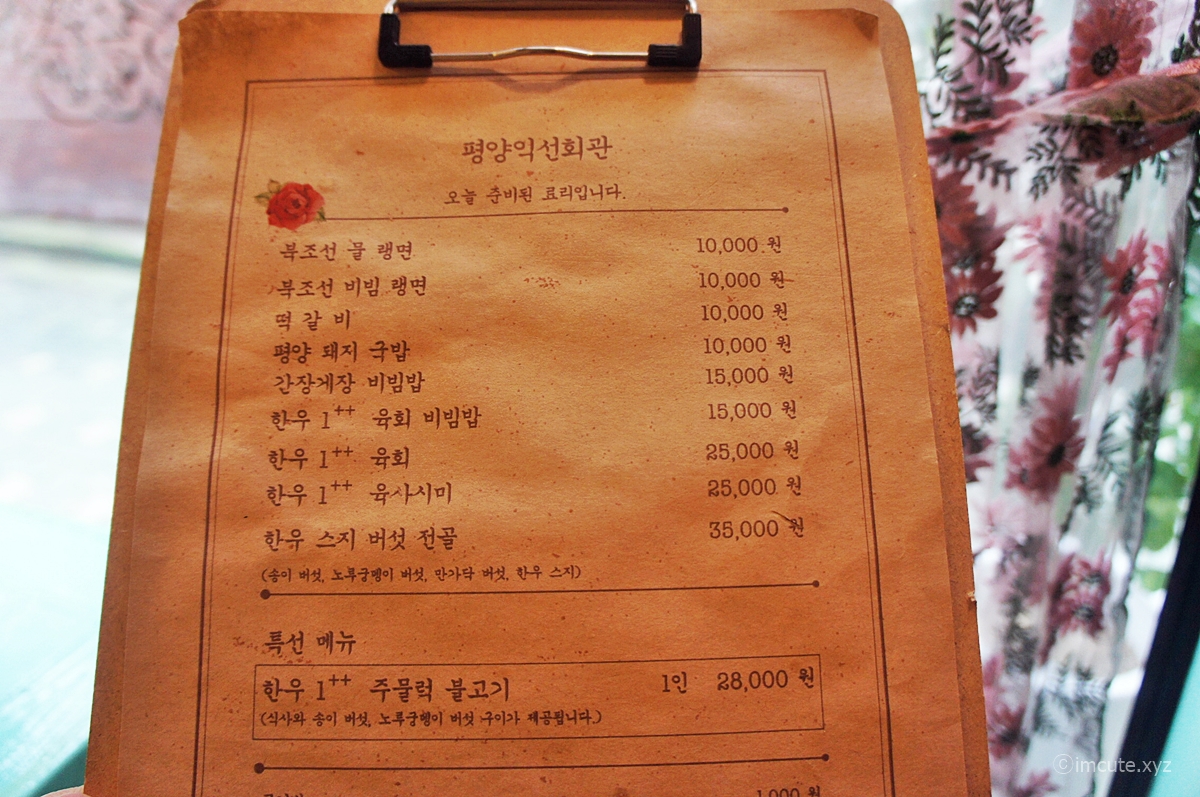 평양익선회관
오늘 준비된 료리입니다.
북조선 물 랭면 10,000 원
북조선 비빔 랭면 10,000 원
떡 갈 비 10,000 원
평양 돼지 국밥 10,000 원
간장게장 비빔밥 15,000 원
한우 1++ 육회 비빔밥 15,000 원
한우 1++ 육회 25,000 원
한우 1++ 육사시미 25,000 원
한우 스지 버섯 전골 35,000 원
(송이 버섯, 노루궁뎅이 버섯, 만가닥 버섯, 한우 스지)
특선 메뉴
한우 1++ 주물럭 불고기 1인 28,000 원
(식사와 송이 버섯, 노루궁뎅이 버섯 구이가 제공됩니다.)
1,000 원
©imcute.xyz